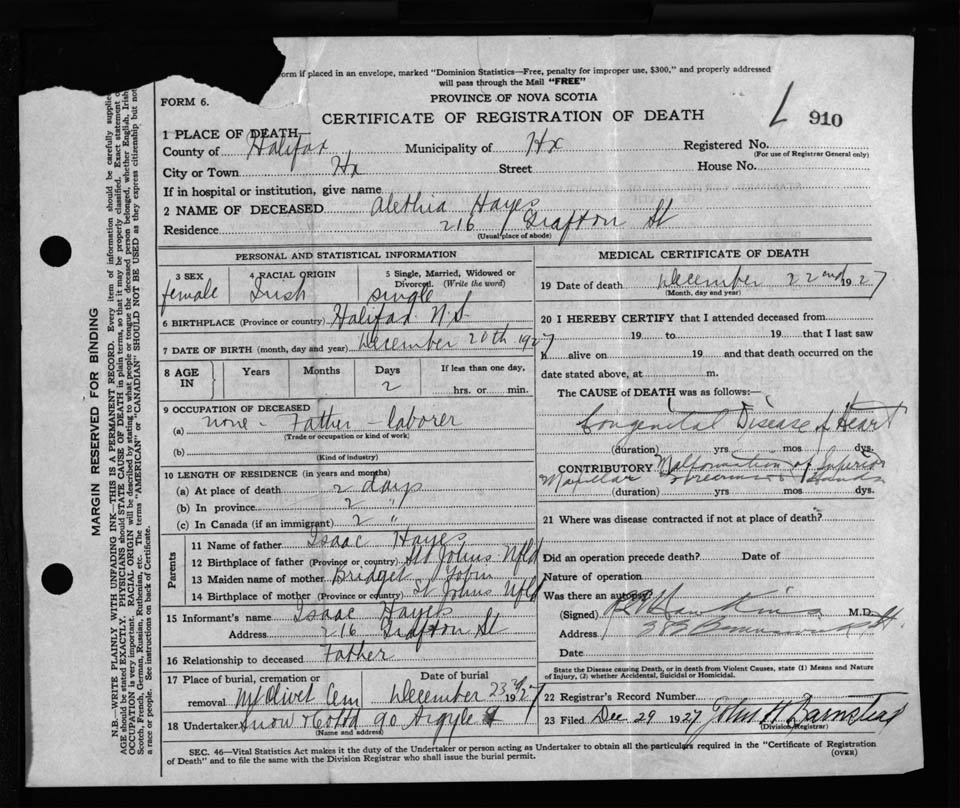 orm if placed in an envelope, marked "Dominion Statistics—Free, penalty for improper use, $300," and properly addressed
will pass through the Mail "FREE"
FORM 6.
PROVINCE OF NOVA SCOTIA
CERTIFICATE OF REGISTRATION OF DEATH
L 910
1 PLACE OF DEATH—
County of Halifax Municipality of Hx Registered No.
(For use of Registrar General only)
City or Town Hx Street House No.
If in hospital or institution, give name
2 NAME OF DECEASED Alethia Hayes
Residence 216 Grafton St
(Usual place of abode)
PERSONAL AND STATISTICAL INFORMATION
3 SEX 4 RACIAL ORIGIN 5 Single, Married, Widowed or Divorced. (Write the word)
female Irish single
6 BIRTHPLACE (Province or country) Halifax N S
7 DATE OF BIRTH (month, day and year) December 20th 1927
8 AGE IN Years Months Days If less than one day,
2 hrs. or min.
9 OCCUPATION OF DECEASED
(a) none - Father - laborer
(Trade or occupation or kind of work)
(b)
(Kind of industry)
10 LENGTH OF RESIDENCE (in years and months)
(a) At place of death 2 days
(b) In province 2 "
(c) In Canada (if an immigrant) 2 "
Parents
11 Name of father Isaac Hayes
12 Birthplace of father (Province or country) St Johns Nfld
13 Maiden name of mother Bridget Tobin
14 Birthplace of mother (Province or country) St Johns Nfld
15 Informant's name Isaac Hayes
Address 216 Grafton St
16 Relationship to deceased Father
17 Place of burial, cremation or removal Date of burial
Mt Olivet Cem December 23rd 1927
18 Undertaker Snow & Co Ltd 90 Argyle St
(Name and address)
MEDICAL CERTIFICATE OF DEATH
19 Date of death December 22nd 1927
(Month, day and year)
20 I HEREBY CERTIFY that I attended deceased from
19 to 19 that I last saw
h alive on 19 and that death occurred on
date stated above, at m.
The CAUSE of DEATH was as follows:—
Congenital Disease of Heart
(duration) yrs mos dys.
CONTRIBUTORY Malformation of Inferior
Maxillar
(duration) yrs mos dys.
21 Where was disease contracted if not at place of death?
Did an operation precede death? Date of
Nature of operation
Was there an autopsy
(Signed) Hawkins M.D.
Address St.
Date
State the Disease causing Death, or in death from Violent Causes, state (1) Means and Nature of Injury, (2) whether Accidental, Suicidal or Homicidal.
22 Registrar's Record Number
23 Filed Dec 29 1927 John H Barnstead
(Division Registrar)
SEC. 46—Vital Statistics Act makes it the duty of the Undertaker or person acting as Undertaker to obtain all the particulars required in the "Certificate of Registration
of Death" and to file the same with the Division Registrar who shall issue the burial permit.
(OVER)
MARGIN RESERVED FOR BINDING
N.B.—WRITE PLAINLY WITH UNFADING INK—THIS IS A PERMANENT RECORD. Every item of information should be carefully supplie
AGE should be stated EXACTLY. PHYSICIANS should STATE CAUSE OF DEATH in plain terms, so that it may be properly classified. Exact statement o
OCCUPATION is very important. RACIAL ORIGIN will be described by stating to what people or tongue the deceased person belonged, whether English, Irish
Scotch, French, German, Russian, Ruthenian, etc. The terms "AMERICAN" or "CANADIAN" SHOULD NOT BE USED as they express citizenship but not
a race or people. See instructions on back of Certificate.